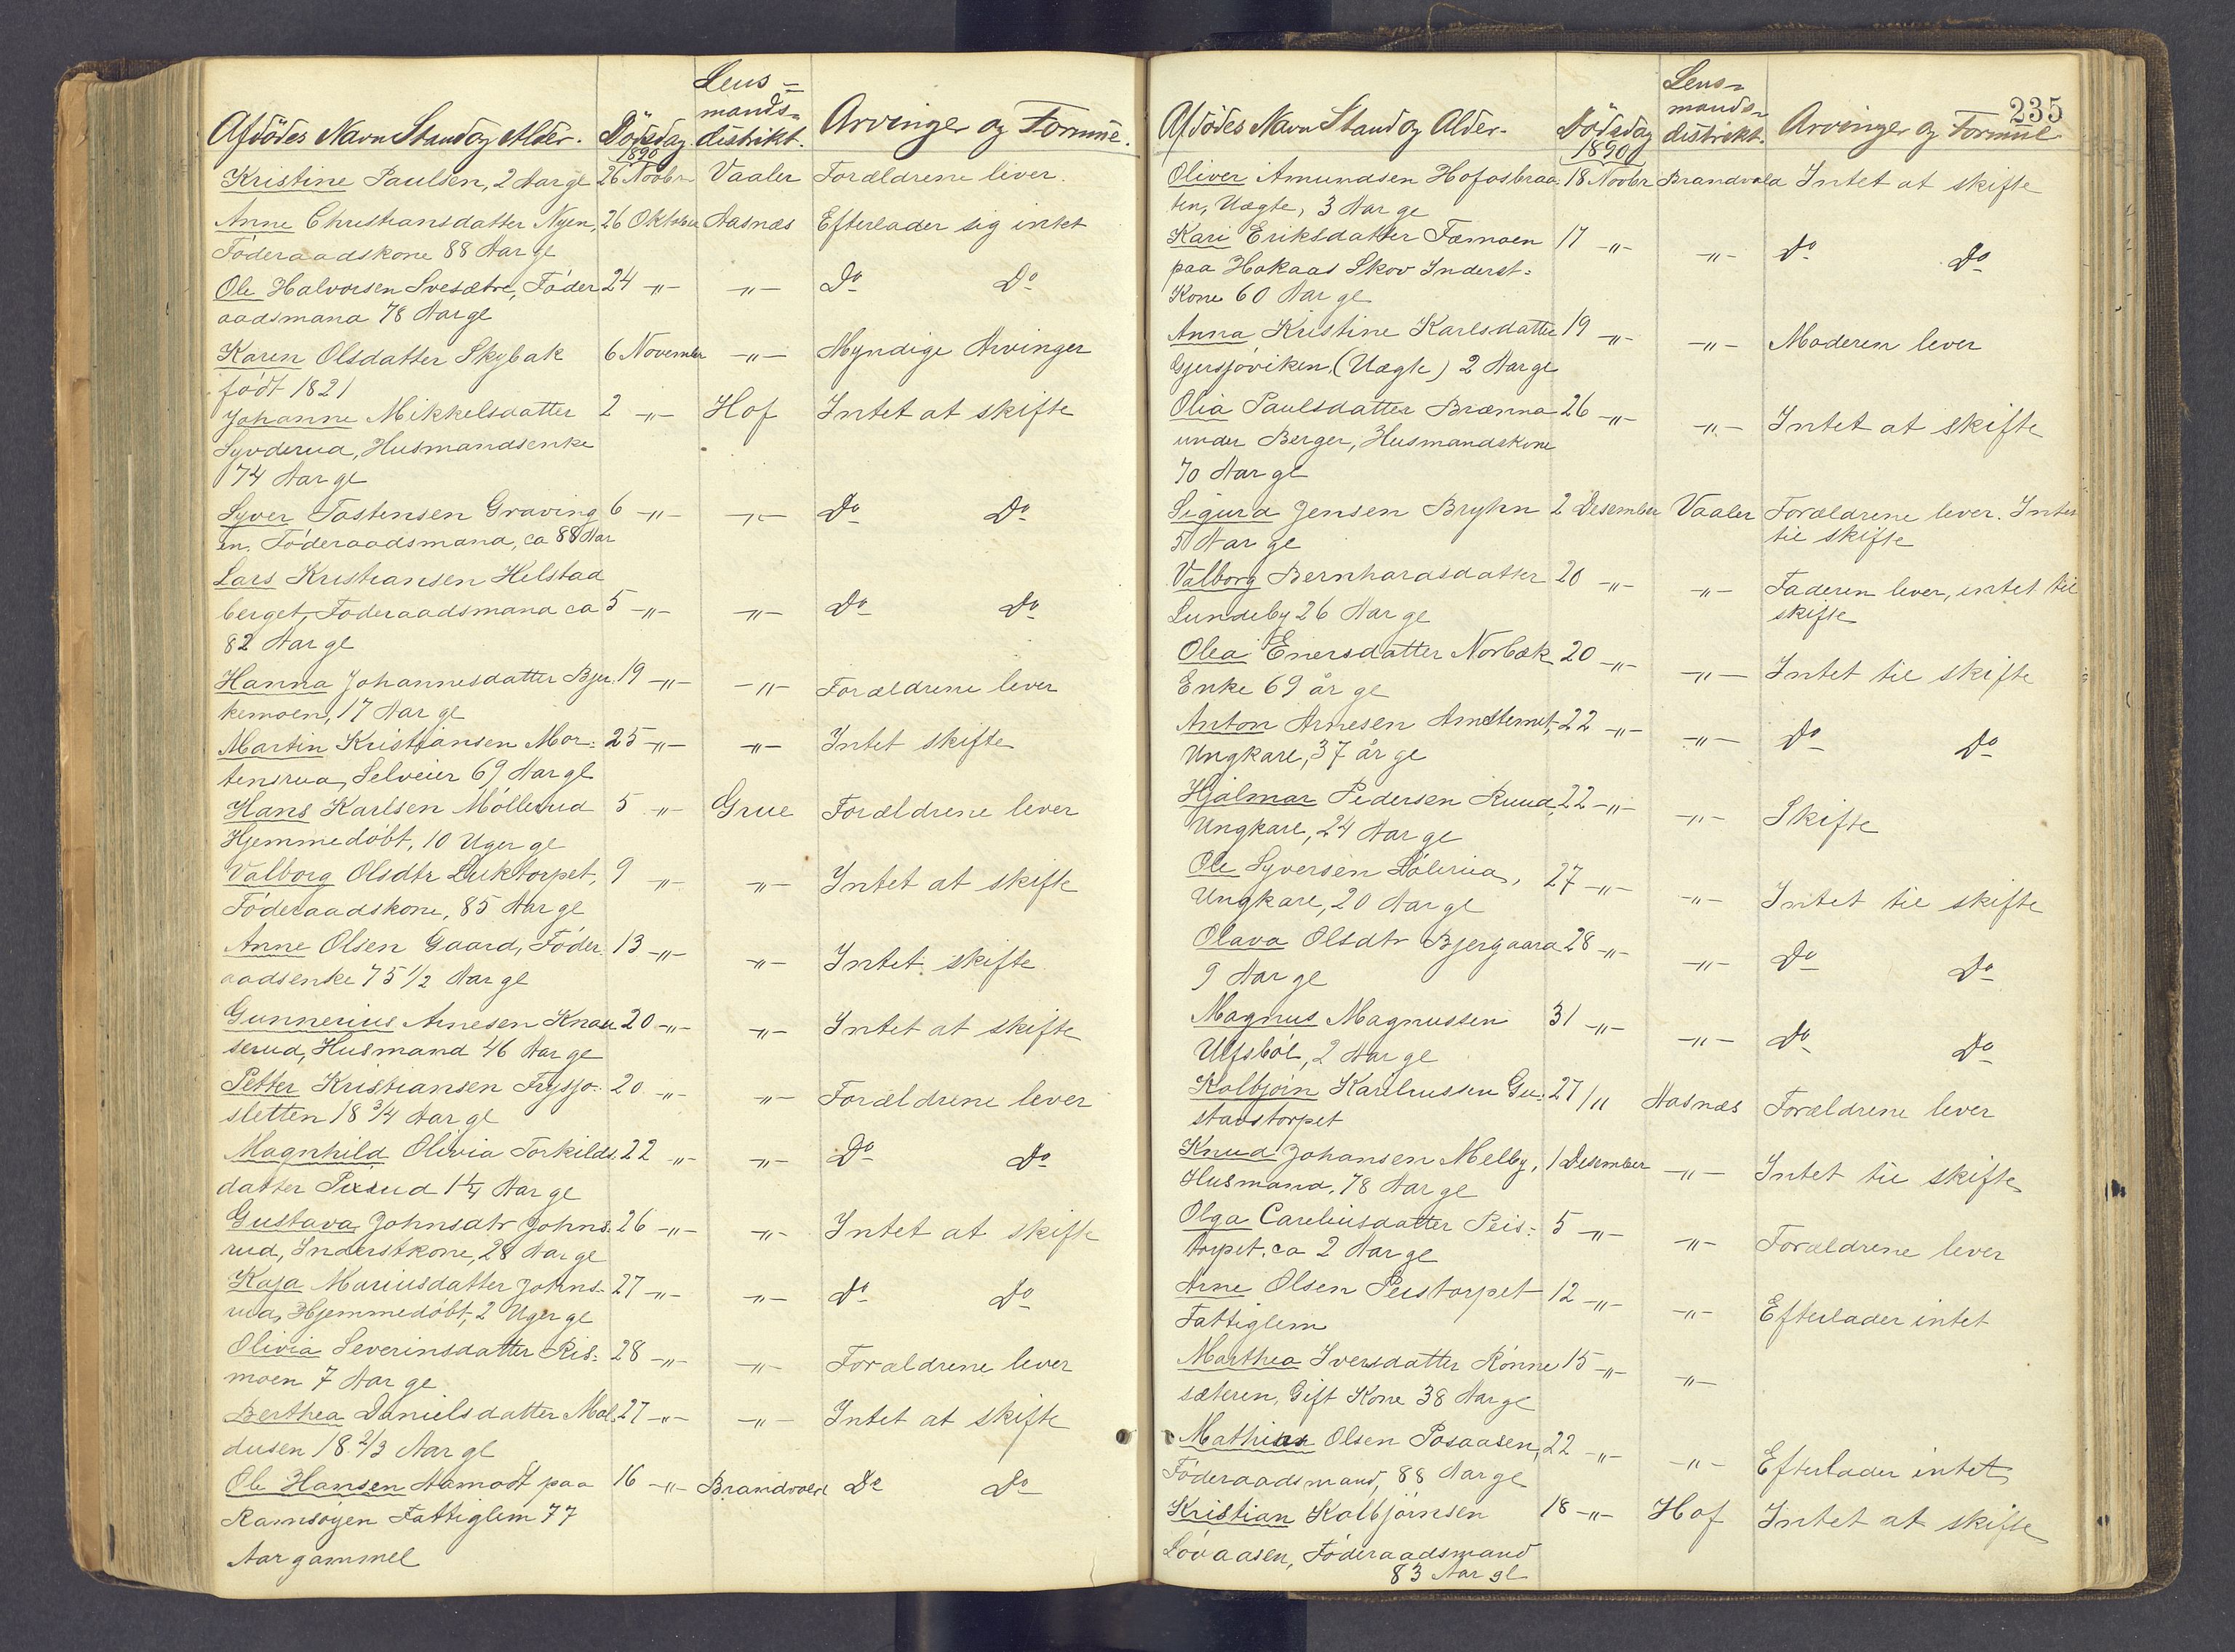 Afdödes Navn Stand og Alder. Dödsdag. Lens=mands=distrikt. Arvinger og Formue.
1890
Kristine Paulsen, 2 Aar gl 26 Novbr Vaaler Forældrene liver.
Anne Christiansdatter Nyen, 26 Oktober Aasnæs Efterlader sig intet
Föderaadskone 88 Aar gl
Ole Halvorsen Svesætre, Föder 24 -"- -"- Do Do
aadsmand 78 Aar gl
Karen Olsdatter Skybak 6 November -"- Myndige Arvinger
födt 1821
Johanne Mikkelsdatter 2 -"- Hof Intet at skifte
Husmandsenke
74 Aar gl
Syver Tostensen Graving 6 -"- -"- Do Do
en, Föderaadsmand, ca 88 Aar
Lars Kristiansen Helstad
berget, Föderaadsmand ca 5 -"- -"- Do Do
82 Aar gl
Hanna Johannesdatter Bjer 19 -"- -"- Forældrene lever
kemoen, 17 Aar gl
Martin Kristiansen Mor= 25 -"- -"- Intet skifte
tensrua, Selveier 69 Aar gl
Hans Karlsen Möllerud 5 -"- Grue Forældrene lever
Hjemmedöbt, 10 Uger gl
Valborg Olsdtr Luktorpet, 9 -"- -"- Intet at skifte
Föderaadskone, 85 Aar gl
Anne Olsen Gaard, Föder 13 -"- -"- Intet skifte
aadsenke 75 1/2 Aar gl
Gunnerius Arnesen Knau 20 -"- -"- Intet at skifte
serud, Husmand 46 Aar gl
Petter Kristiansen Frysjo- 20 -"- -"- Forældrene lever
sletten 18 3/4 Aar gl
Magnhild Olivia Torkilds 22 -"- -"- Do Do
datter 1 1/4 Aar gl
Gustava Johnsdtr Johns- 26 -"- -"- Intet at skifte
rud, Inderstkone, 28 Aar gl
Kaja Mariusdatter Johns- 27 -"- -"- do Do
rud, Hjemmedöbt, 2 Uger gl
Olivia Severinsdatter Ris= 28 -"- -"- Forældrene lever
moen 7 Aar gl
Berthea Danielsdatter Mol 27 -"- -"- Intet at skifte
dusen 18 2/3 Aar gl
Ole Hansen Aamodt paa 16 -"- Brandvold Do Do
Ramsöyen Fattiglem 77
Aar gammel
235
Afdödes Navn Stand og Alder- Dödsdag Lens=mands=distrikt. Arvinger og Formue
1890
Oliver Amundsen Hofosbraa- 18 Novbr Brandvold Intet at skifte
ten, Uægte, 3 Aar gl
Kari Eriksdatter Tæmoen 17 -"- -"- Do Do
paa Hokaas Skov Inderst=
Kone 60 Aar gl
Anna Kristine Karlsdatter 19 -"- -"- Moderen lever
Gjersjöviken (Uægte) 2 Aar gl
Olia Paulsdatter Brænna 26 -"- -"- Intet at skifte
under Berger, Husmandskone
70 Aar gl
Sigurd Jensen Bryhn 2 Desember Vaaler Forældrene lever. Intet
5 Aar gl til skifte
Valborg Bernhardsdatter 20 -"- -"- Faderen lever, intet til
Lundeby 26 Aar gl skifte
Olea Enersdatter Norbæk 20 -"- -"- Intet til skifte
Enke 69 år gl
Anton Arnesen 22 -"- -"- Do Do
Ungkarl, 37 år gl
Hjalmar Pedersen Ruud, 22 -"- -"- Skifte
Ungkarl, 24 Aar gl
Ole Syversen Dölerud, 27 -"- -"- Intet til skifte
Ungkarl, 20 Aar gl
Olava Olsdtr Bjergaard 28 -"- -"- Do Do
9 Aar gl
Magnus Magnussen 31 -"- -"- Do Do
Ulfsböl, 2 Aar gl
Kolbjörn Karelinssen Gu- 27/11 Aasnæs Forældrene lever
stavstorpet
Knud Johansen Melby, 1 Desember -"- Intet til skifte
Husmand, 78 Aar gl
Olga Careliusdatter Peis= 5 -"- -"- Forældrene lever
torpet, ca 2 Aar gl
Arne Olsen Peistorpet 12 -"- -"- Efterlader intet
Fattiglem
Marthea Iversdatter Rönne 15 -"- -"-
sæteren, Gift Kone 38 Aar gl
Mathias Olsen Posaasen, 22 -"- -"- Efterlader intet
Föderaadsmand, 88 Aar gl
Kristian Kolbjörnsen 18 -"- Hof Intet at skifte
Lövaasen, Föderaadsmand
83 Aar gl